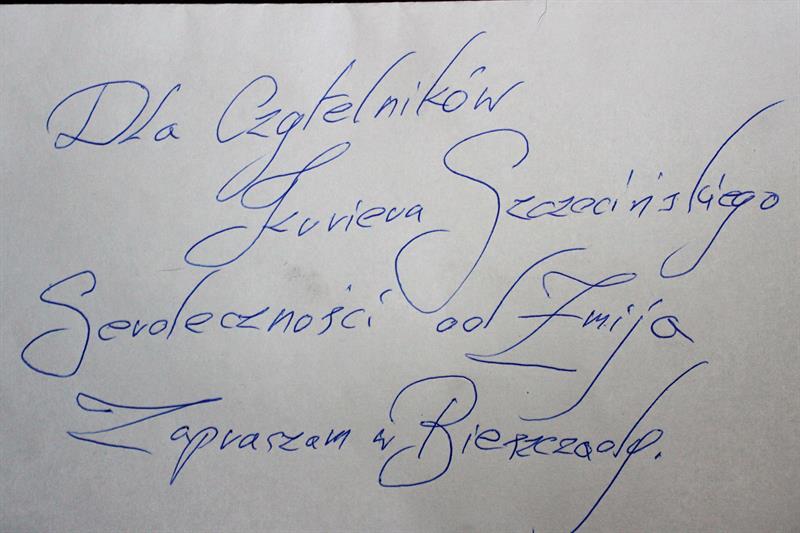 Dla Czytelników
Kuriera Szczecińskiego
Serdeczności od Żmija
Zapraszam w Bieszczady.